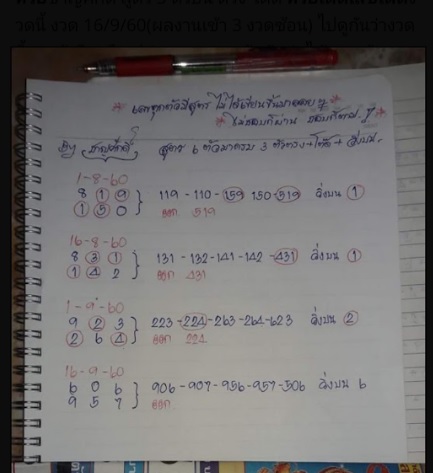 วดนี้ งวด 16/9/60(ผลงานเข้า 3 งวดซ้อน) ไปดูกันว่างวด
* เลขทุกตัวมีสูตร ไม่ได้เขียนขึ้นมาลอยๆ *
* ไม่ชอบก็ผ่าน
By สูตร 6 ตัว 3 ตัวตรง + โต๊ด + วิ่งบน
1-8-60
8 1 9
1 5 0
119 - 110 - 159 150 - 519 วิ่งบน 1
ออก 519
16-8-60
8 3 1
1 4 2
131 - 132 - 141 - 142 - 431 วิ่งบน 1
ออก 431
1-9-60
9 2 3
2 6 4
223 - 224 - 263 - 264 - 623 วิ่งบน 2
ออก 224
16-9-60
6 0 6
9 5 7
906 - 907 - 956 - 957 - 506 วิ่งบน 6
ออก